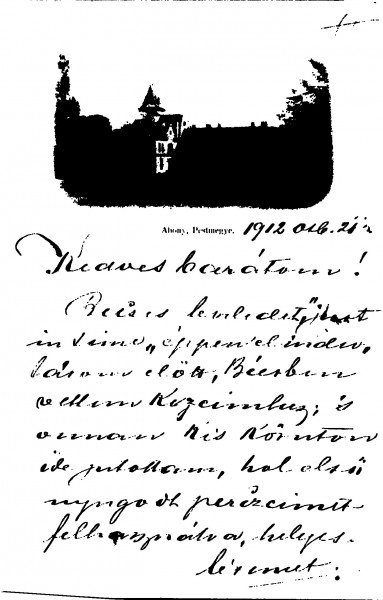 Abony, Pestmegye. 1912 okt. 21én
Kedves barátom!
Becses leveledet
éppen elindu-
lásom előtt, Bécsben
vettem kézcimhez; és
onnan kis
ide jutottam, hol első
nyugodt perczeimet
felhasználva, helyes-
lésemet